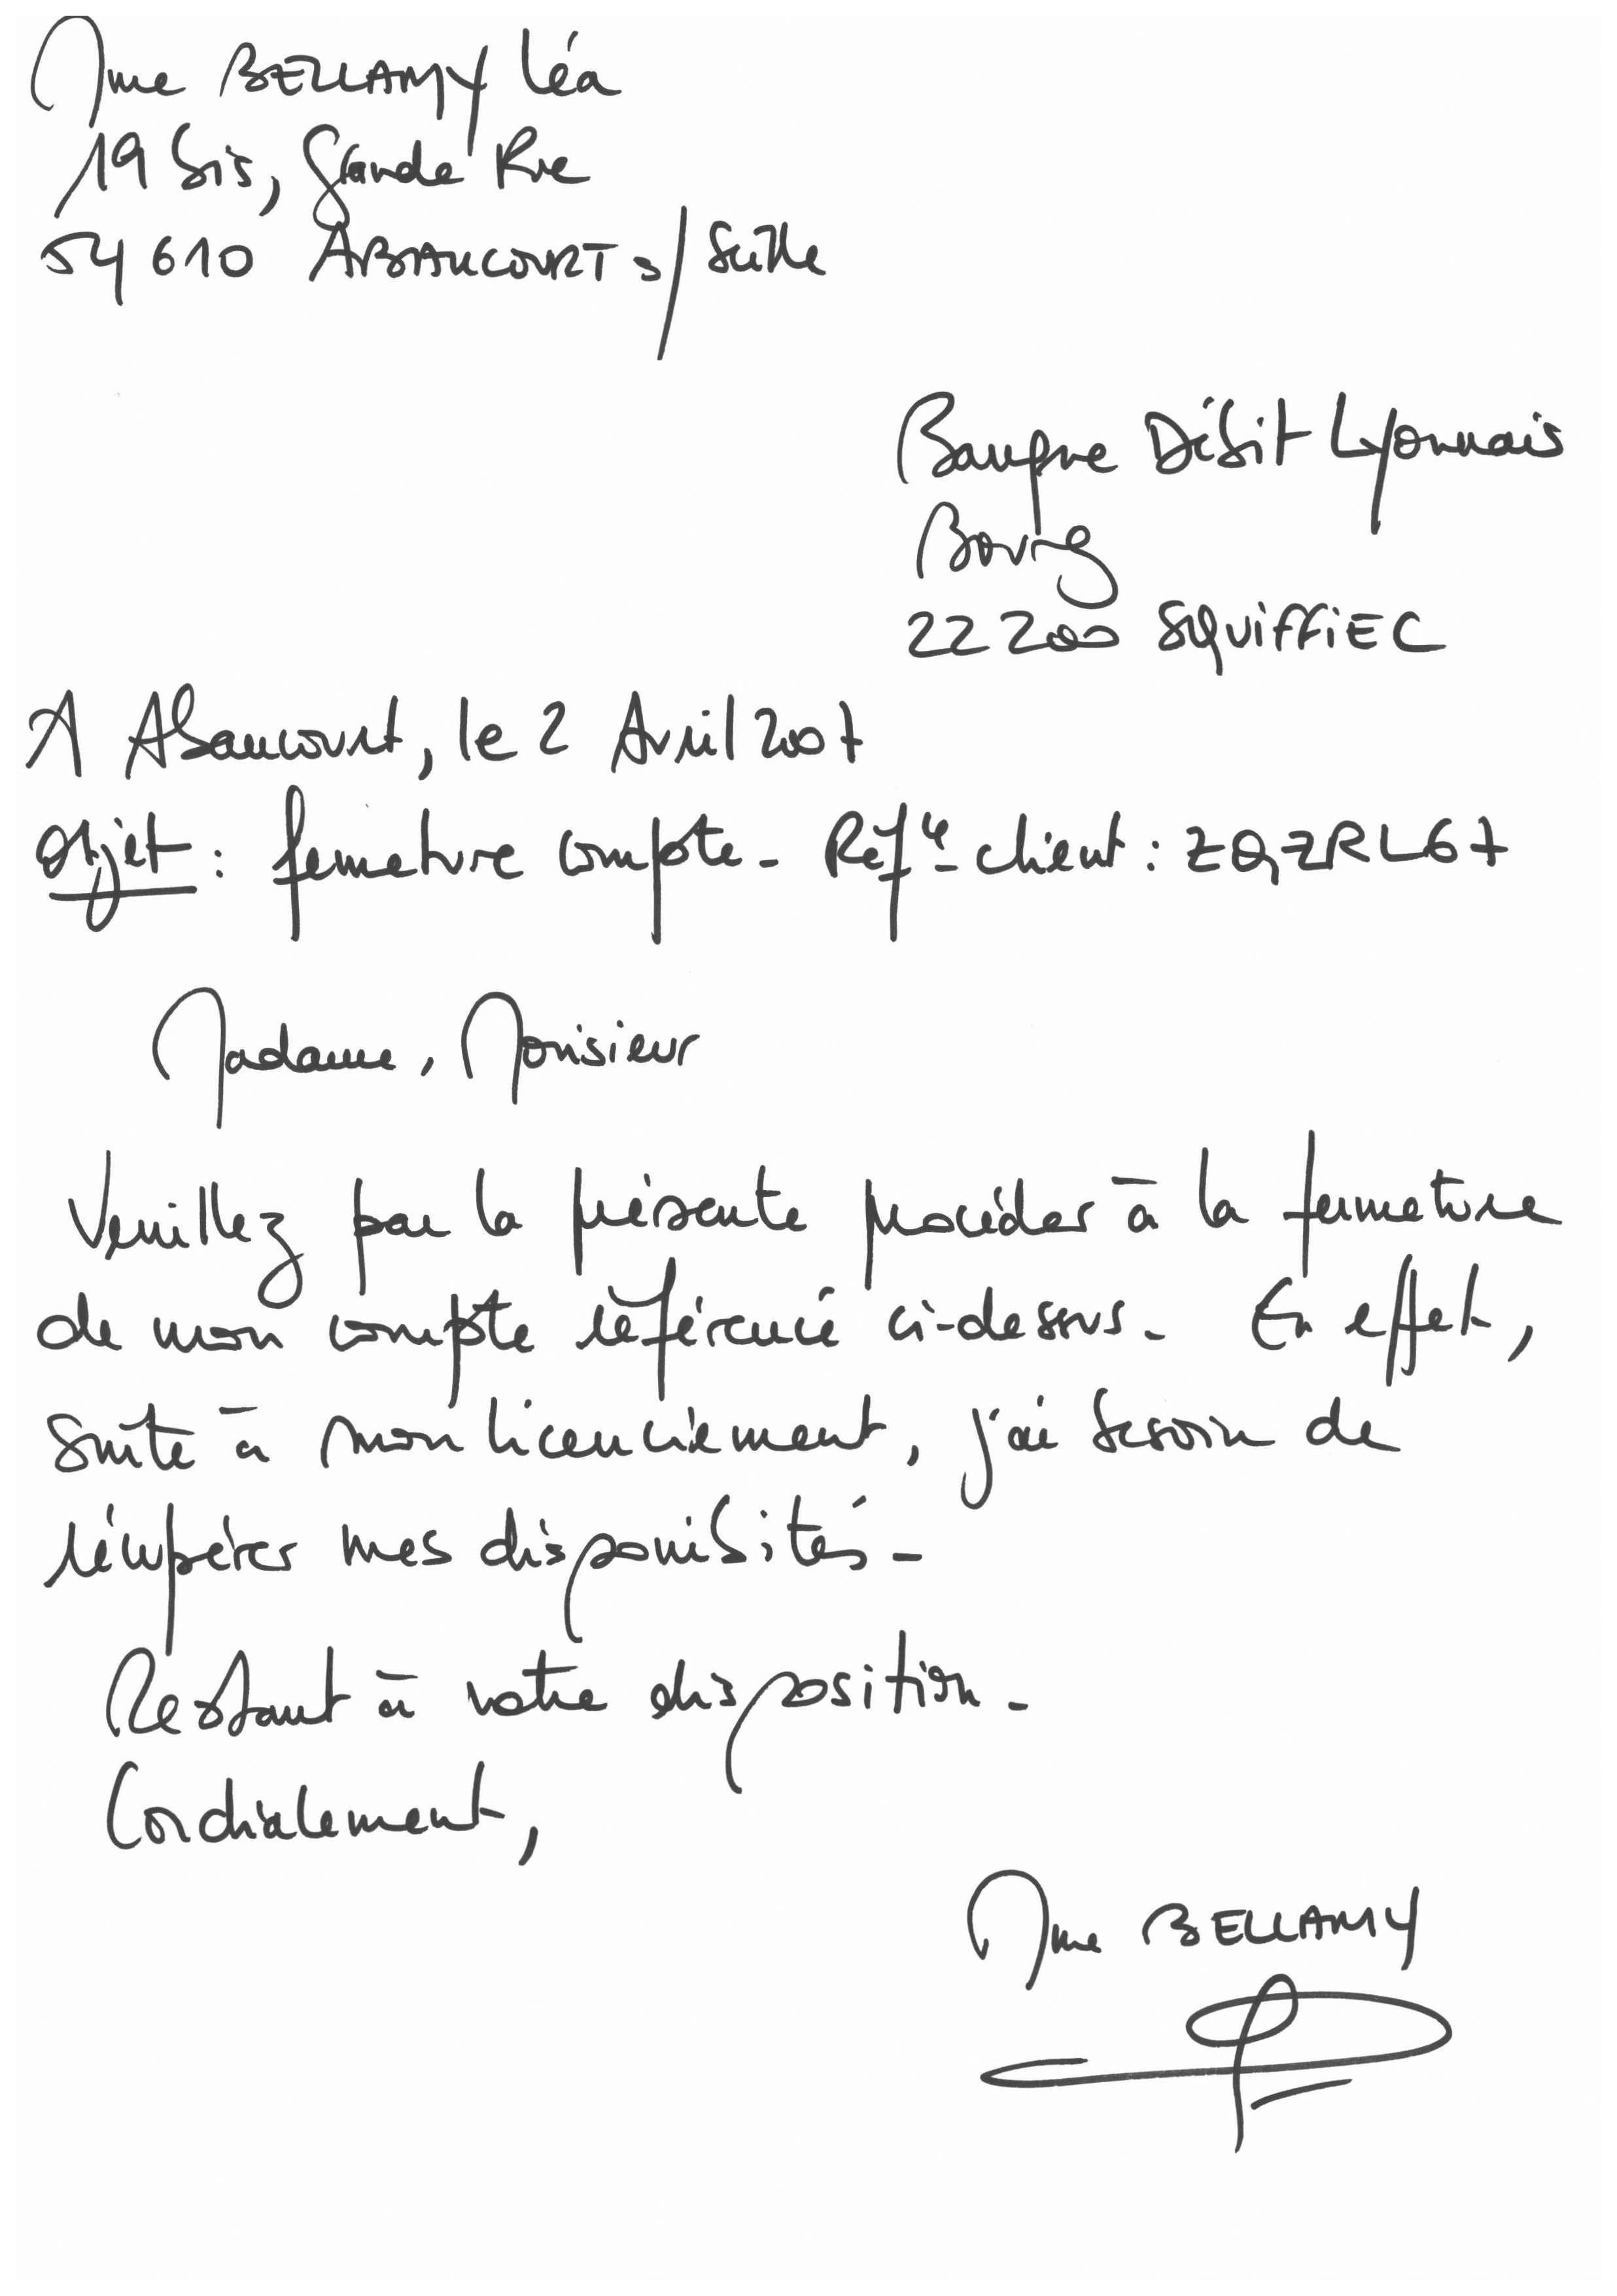 Mme BELLAMY Léa
19 bis, Grande Rue
54610 ABAUCOURT s/ Seille
Banque Débit Lyonnais
Bourg
22200 SQUIFFIEC
A Abaucourt, le 2 Avril 2007
Objet : fermeture compte - Réfce client : ZQZRL67
Madame, Monsieur
Veuillez par la présente procéder à la fermeture
de mon compte référencé ci-dessus. En effet,
suite à mon licenciement, j'ai besoin de
récupérer mes disponibités.
Restant à votre disposition.
Cordialement,
Mme BELLAMY